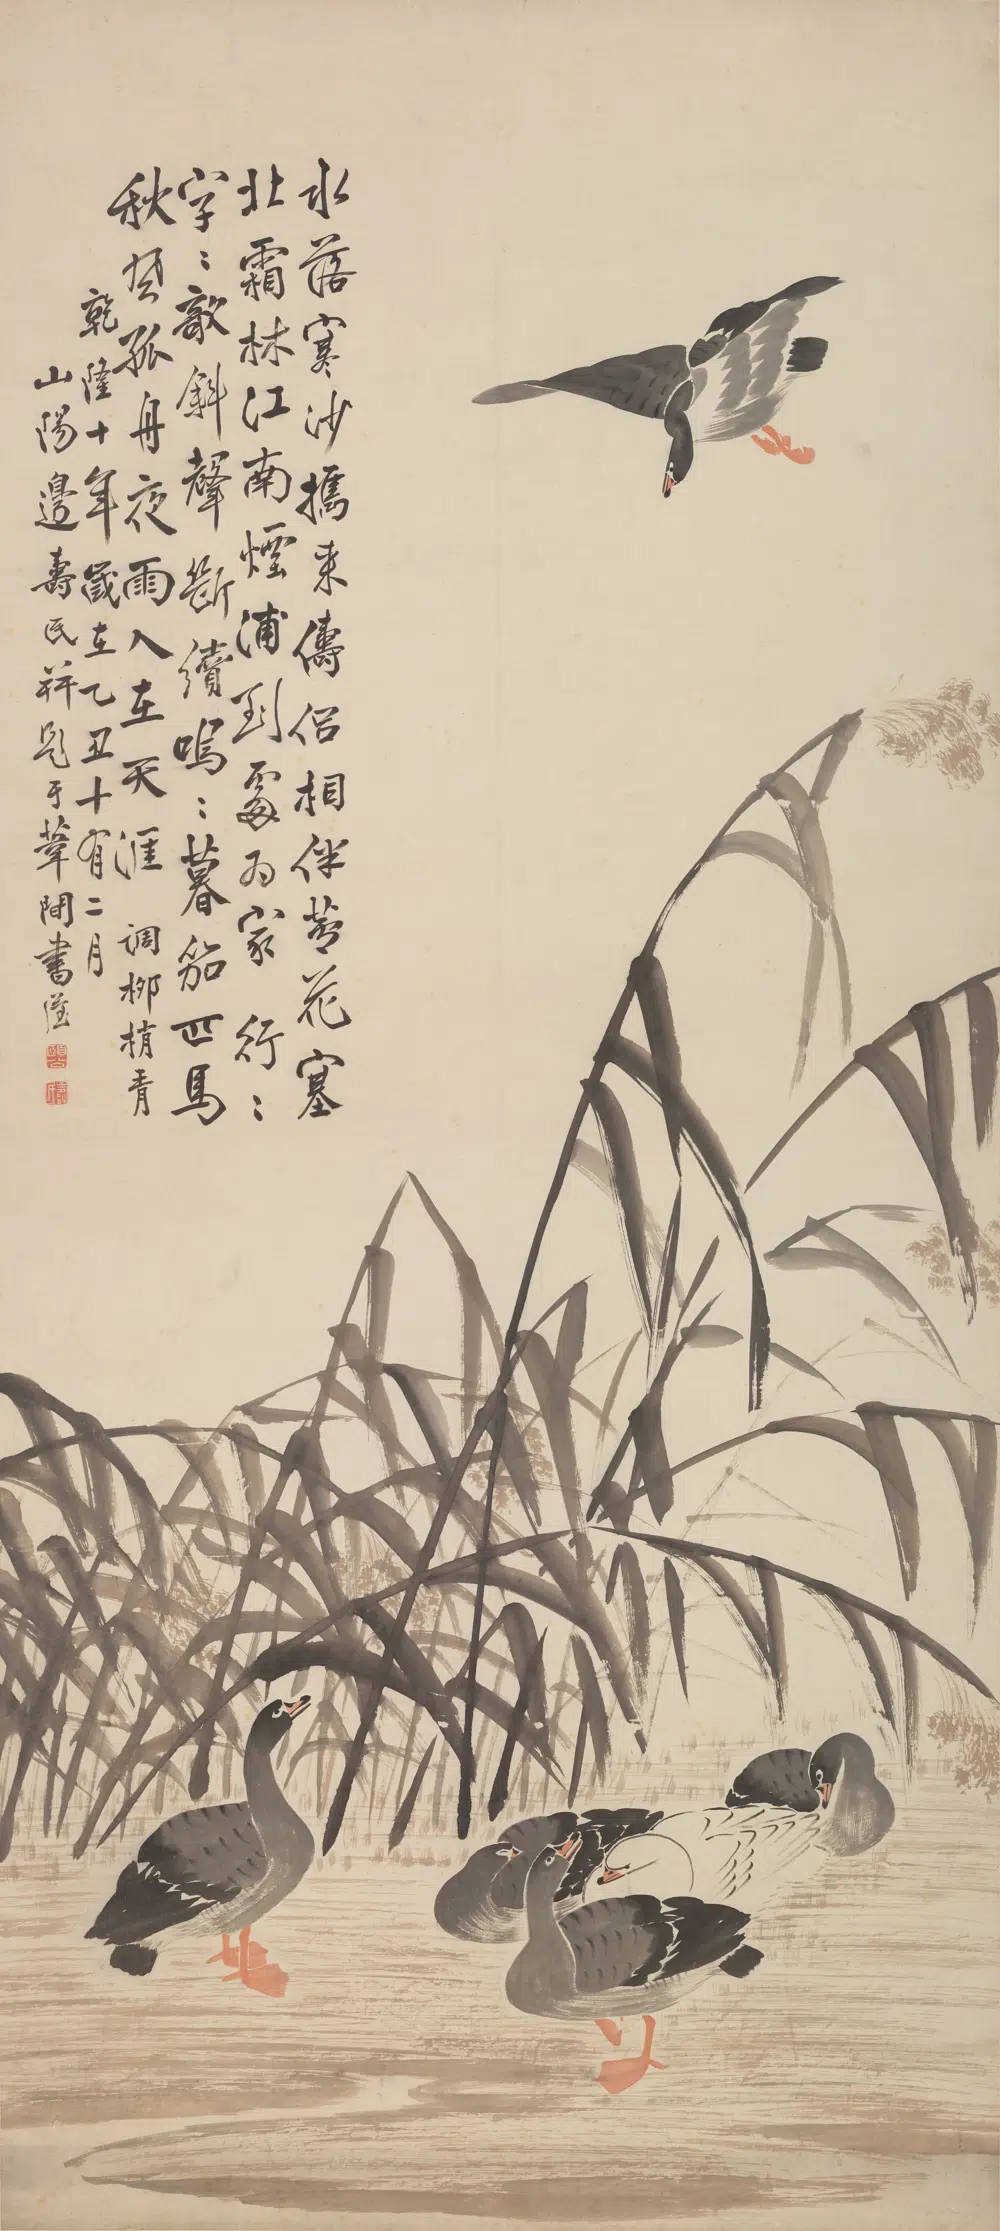 水落寒沙攜来儔侶相伴蘆花塞
北霜林江南煙浦到處為家行〻
字〻敧斜聲斷續鳴〻暮笳匹馬
秋孤舟夜雨人在天涯 調柳梢青
乾隆十年歲在乙丑十有二月
山陽邊壽民并題于葦間書屋